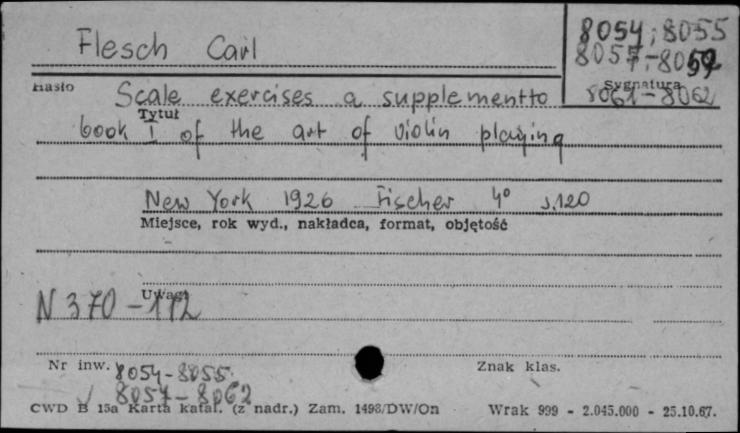 Flesch Carl
8054; 8055
8057-8059
Hasło
Sygnatura
8061-8062
Scale exercises a supplement to
Tytuł
book I of the art of violin playing
New York 1926 Fischer 4° s.120
Miejsce, rok wyd., nakładca, format, objętość
Uwagi
N 370-112
Nr inw. 8054-8055
Znak klas.
8057-8062
CWD B 15a Karta katal. (z nadr.) Zam. 1498/DW/On Wrak 999 - 2.045.000 - 25.10.67.